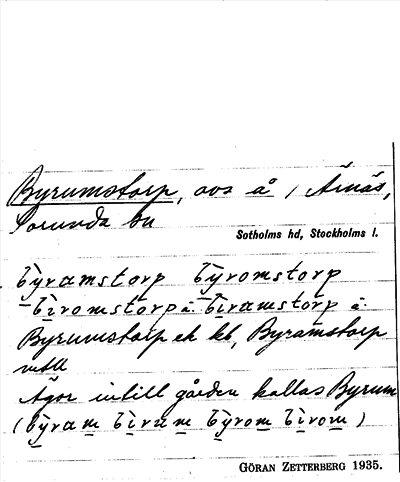 Byrumstorp, avs å / Årnäs,
Sorunda sn
Sotholms hd, Stockholms l.
bỳramstorp bỳromstorp
bìromstorp à. bìramstorp à.
Byrumstorp ek kb, Byramstorp
mtll
Ägor intill gården kallas Byrum
(bỳram bìram bỳrom bìrom)
GÖRAN ZETTERBERG 1935.